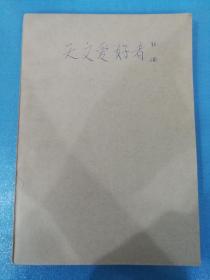 天文爱好者